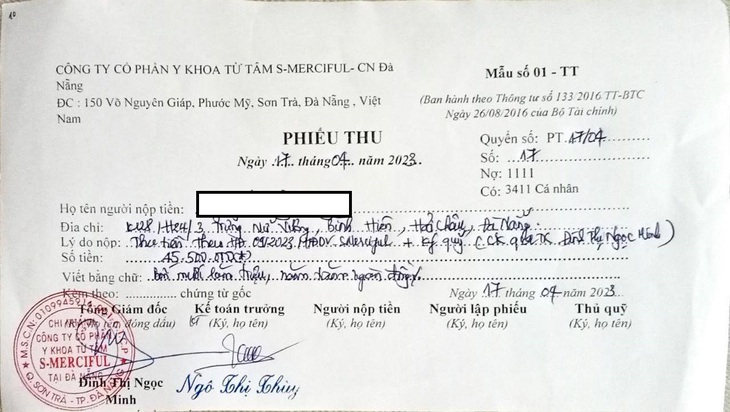 CÔNG TY CỔ PHẦN Y KHOA TỪ TÂM S-MERCIFUL- CN Đà Nẵng
ĐC : 150 Võ Nguyên Giáp, Phước Mỹ, Sơn Trà, Đà Nẵng , Việt Nam
Mẫu số 01 - TT
(Ban hành theo Thông tư số 133/2016 TT-BTC
Ngày 26/08/2016 của Bộ Tài chính)
PHIẾU THU
Ngày 17 tháng 04 năm 2023
Quyển số: PT 17/04
Số: 17
Nợ: 1111
Có: 3411 Cá nhân
Họ tên người nộp tiền:
Địa chỉ: K128/H24/3 Trưng Nữ Vương, Bình Hiên, Hải Châu, Đà Nẵng
Lý do nộp: Thu tiền theo HĐ 09/2023/HĐDV + Ký quỹ (CK qua TK Đinh Thị Ngọc Minh)
Số tiền: 45.500.000
Viết bằng chữ: bốn mươi lăm triệu, năm trăm ngàn đồng
Kèm theo: chứng từ gốc
Ngày 17 04 năm 2023
Tổng Giám đốc Kế toán trưởng Người nộp tiền Người lập phiếu Thủ quỹ
(Ký, họ tên, đóng dấu) (Ký, họ tên) (Ký, họ tên) (Ký, họ tên) (Ký, họ tên)
CHI NHÁNH
CÔNG TY CỔ PHẦN
Y KHOA TỪ TÂM
S-MERCIFUL
TẠI ĐÀ NẴNG
Q. SƠN TRÀ - TP. ĐÀ NẴNG
Đinh Thị Ngọc Minh
Ngô Thị Thùy